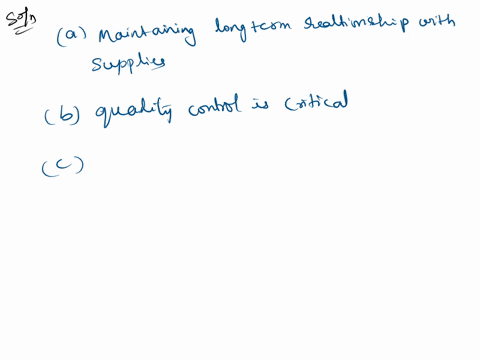 Soln
(a) Maintaining long term realtionship with
Supplies
(b) quality control is critical
(c)